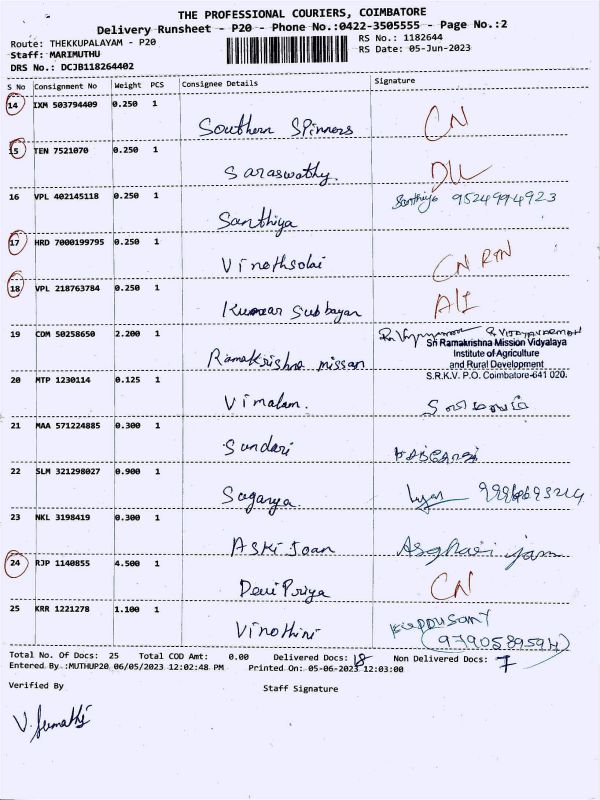 THE PROFESSIONAL COURIERS, COIMBATORE
Delivery Runsheet - P20 - Phone No.:0422-3505555 - Page No.:2
Route: THEKKUPALAYAM - P20
RS No.: 1182644
Staff: MARIMUTHU
RS Date: 05-Jun-2023
DRS No.: DCJB118264402
S No Consignment No Weight PCS Consignee Details Signature
14 IXM 503794409 0.250 1
Southern Spinners CN
15 TEN 7521070 0.250 1
Saraswathy. DLL
16 VPL 402145118 0.250 1
Santhiya Santhiya 9524994923
17 HRD 7000199795 0.250 1
Vinothsolai CN RTN
18 VPL 218763784 0.250 1
Kumaar Subbayan
19 COM 50258650 2.200 1
Ramakrishna missan
Sri Ramakrishna Mission Vidyalaya
Institute of Agriculture
and Rural Development
S.R.K.V. P.O. Coimbatore-641 020.
20 MTP 1230114 0.125 1
Vimalam.
21 MAA 571224885 0.300 1
Sundari
22 SLM 321298027 0.900 1
Suganya.
23 NKL 3198419 0.300 1
Aski Joan
24 RJP 1140855 4.500 1
Devi Priya CN
25 KRR 1221278 1.100 1
Vinothini Kuppusamy
9790589594
Total No. Of Docs: 25 Total COD Amt: 0.00 Delivered Docs: 18 Non Delivered Docs: 7
Entered By :MUTHUP20 06/05/2023 12:02:48 PM Printed On: 05-06-2023 12:03:00
Verified By Staff Signature
V. Sumathi